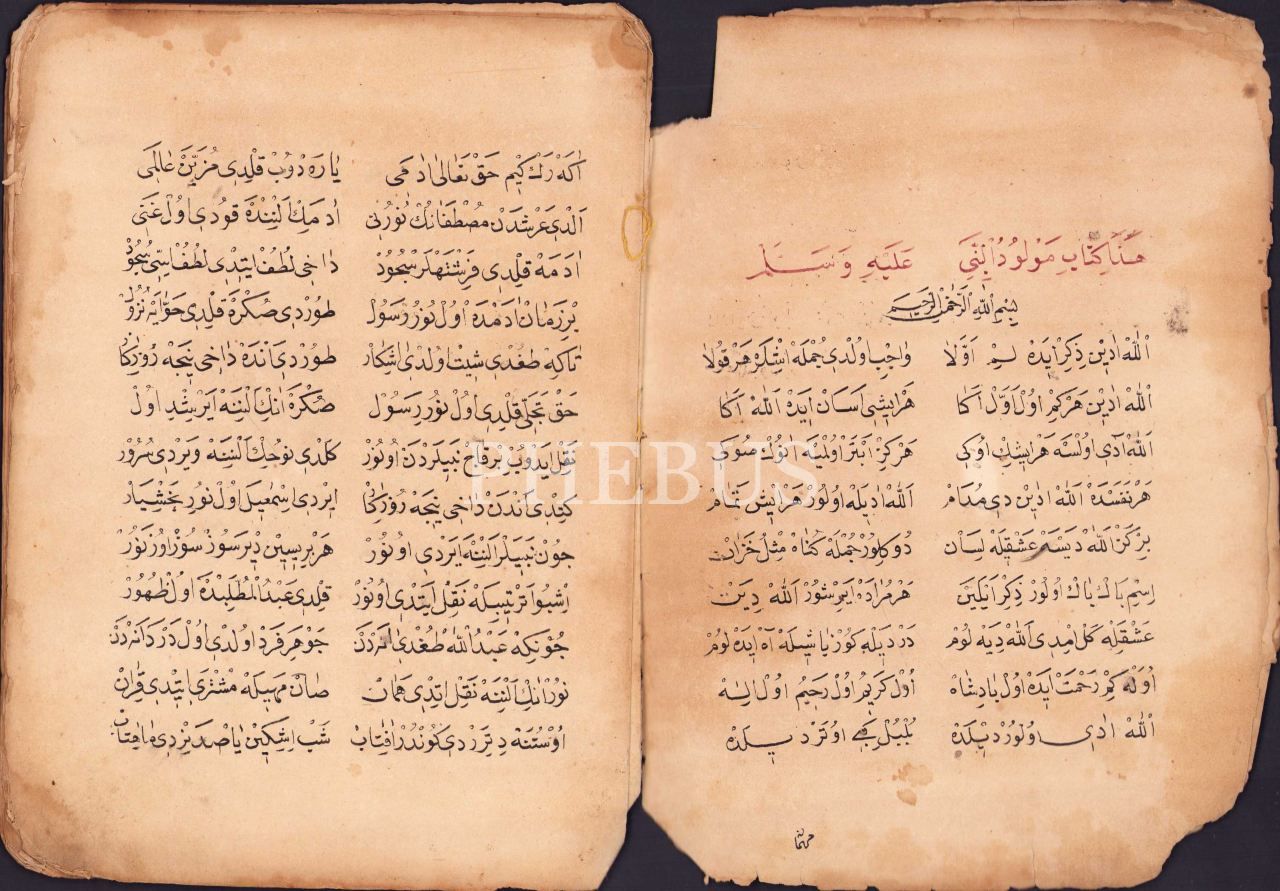 هذا كتاب مولود النبي عليه وسلم
بسم الله الرحمن الرحيم
الله ادين ذكر ايده لم اولا واجب اولدى جمله ايشده هر قولا
الله ادين هر كم اول اول اكا هر ايشى اسان ايده الله اكا
الله ادى اولسه هر ايشك اوكى هركز ابتر اولميه انوك صوكى
هر نفسده الله ادين دى مدام الله اديله اولور هر ايش تمام
بركز الله ديسه عشقله لسان دوكلور جمله كناه مثل خزان
اسم باك باك اولور ذكر ايلين هر مراده ايرشور الله دين
عشقله كل امدى الله ديه لوم درديله كوز ياشيله اه ايده لوم
اوله كم رحمت ايده اول بادشاه اول كريم اول رحيم اول اله
الله ادى اولور ديلده بلبل كبى اوتر ديلده
حق تعالى ادمى قلدى مزين عالمى
الدى عرشدن مصطفانك نورنى ادمك النده قودى اول غنى
ادمه قلدى فرشتهلر سجود داخى لطف ايتدى
بر زمان ادمده اول نور رسول طوردى صكره قلدى حوايه نزول
تاكه طغدى شيت اولدى اشكار طوردى انده داخى نيجه روزكا
حق تجلى قلدى اول نور رسول صكره انك النه ايرشدى اول
نقل ايدوب بر قاج نبيلردن او نور كلدى نوحك النه ويردى سرور
كتدى اندن داخى نيجه روزكا ايردى اسمعيل اول نور
جون نبيلر النه ايردى او نور
اشبو ترتيبله نقل ايتدى او نور قلدى عبد المطلبده اول ظهور
جونكه عبد الله طغدى اندن جوهر فرد اولدى اول دردانه دن
نور انك النه نقل ايتدى همان صان مهيله مشترى ايتدى قران
اوستنه دتردى كوندر افتاب
PHEBUS